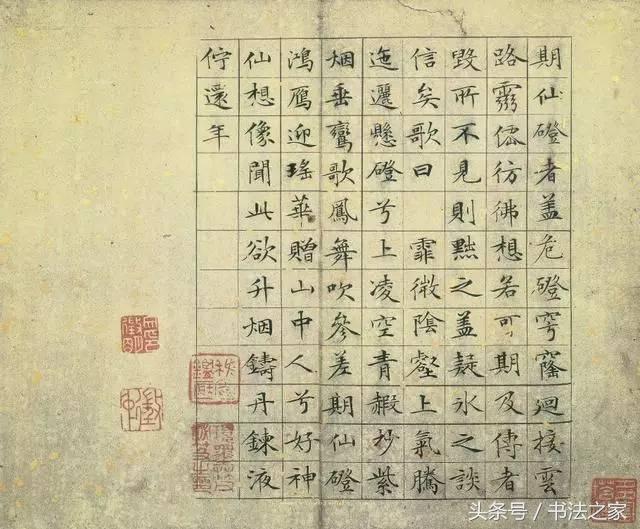 期仙磴者盖危磴穹窿迴接雲
路靈僊彷彿想若可期及傳者
毀所不見則黜之盖疑冰之談
信矣歌曰 霏微陰壑上氣騰
迤邐懸磴兮上凌空青赮杪紫
烟垂鸞歌鳳舞吹參差期仙磴
鴻鴈迎瑤華贈山中人兮好神
仙想像聞此欲升烟鑄丹鍊液
佇還年
头条号 / 书法之家